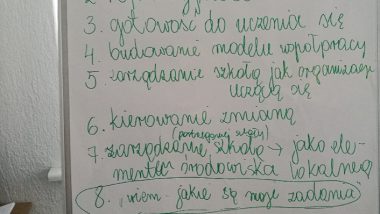 3. gotowość do uczenia się
4. budowanie modelu współpracy
5. zarządzanie szkołą jak organizacją
uczącą się
6. kierowanie zmianą
7. zarządzanie szkołą → jako ele-
mentem środowiska lokalnego
8. wiem jakie są moje zadania